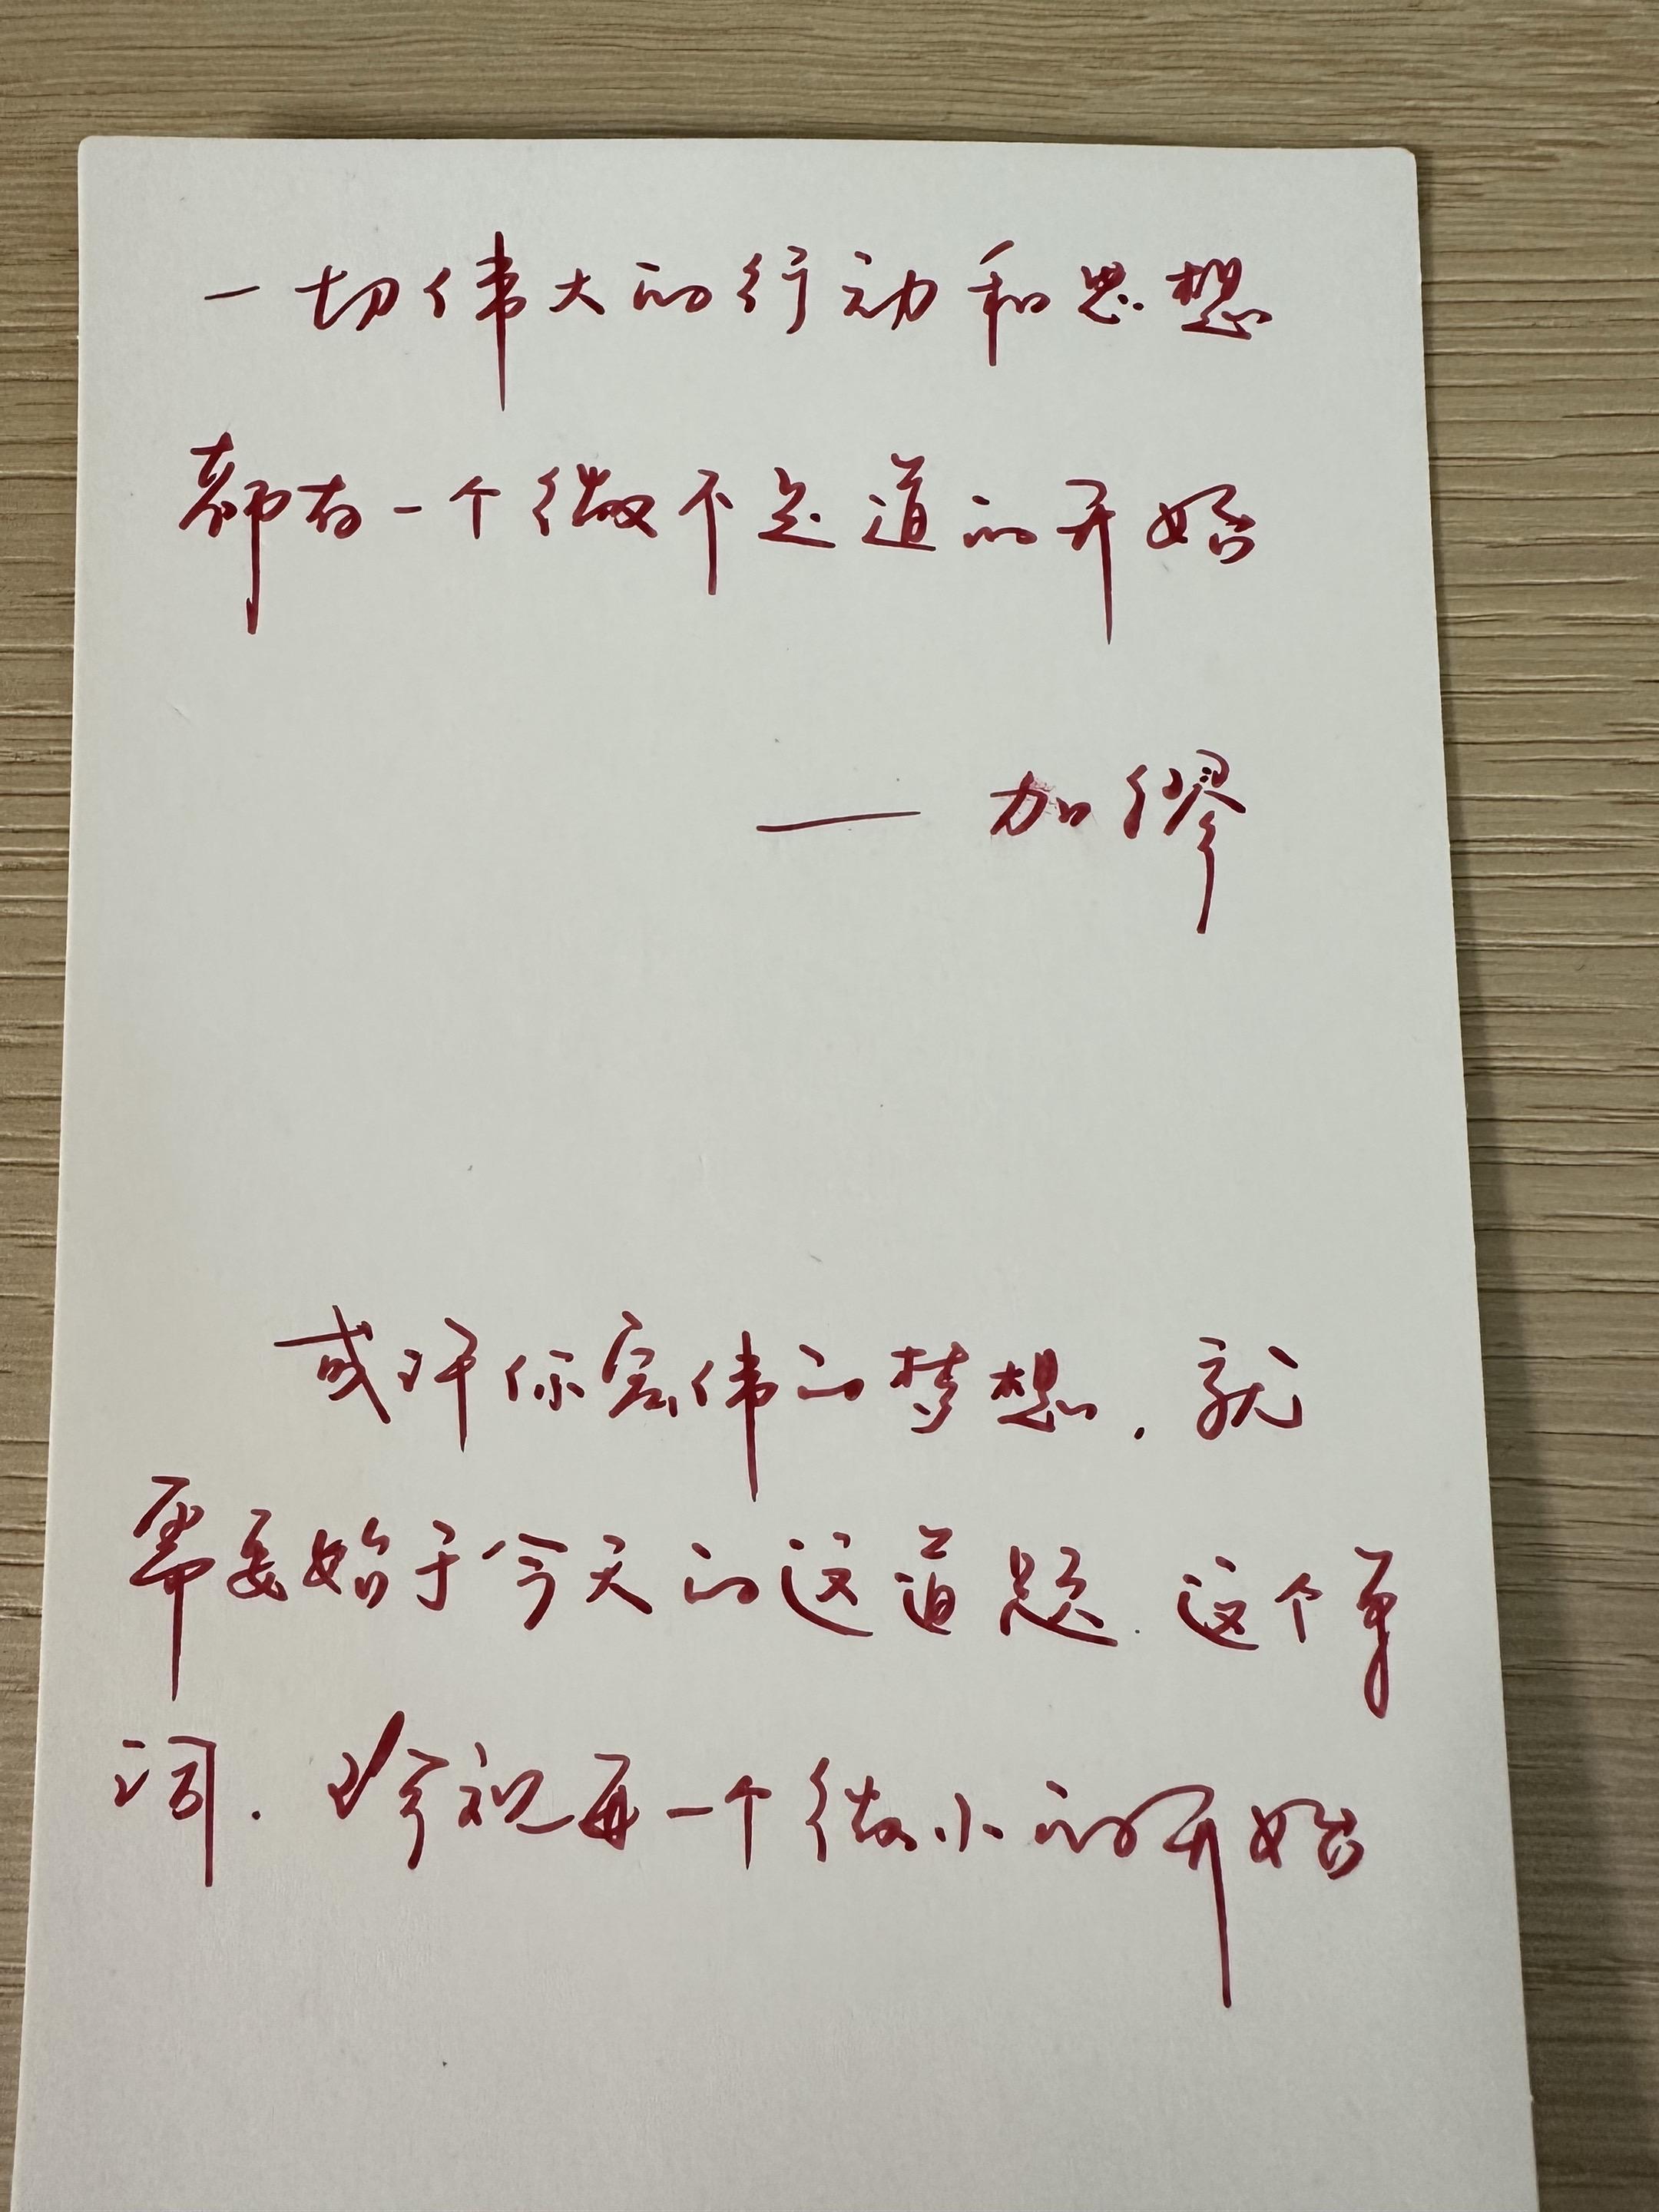 一切伟大的行动和思想
都有一个微不足道的开始
— 加缪
或许你宏伟的梦想，就
需要始于今天的这道题.这个单
词. 珍视每一个微小的开始